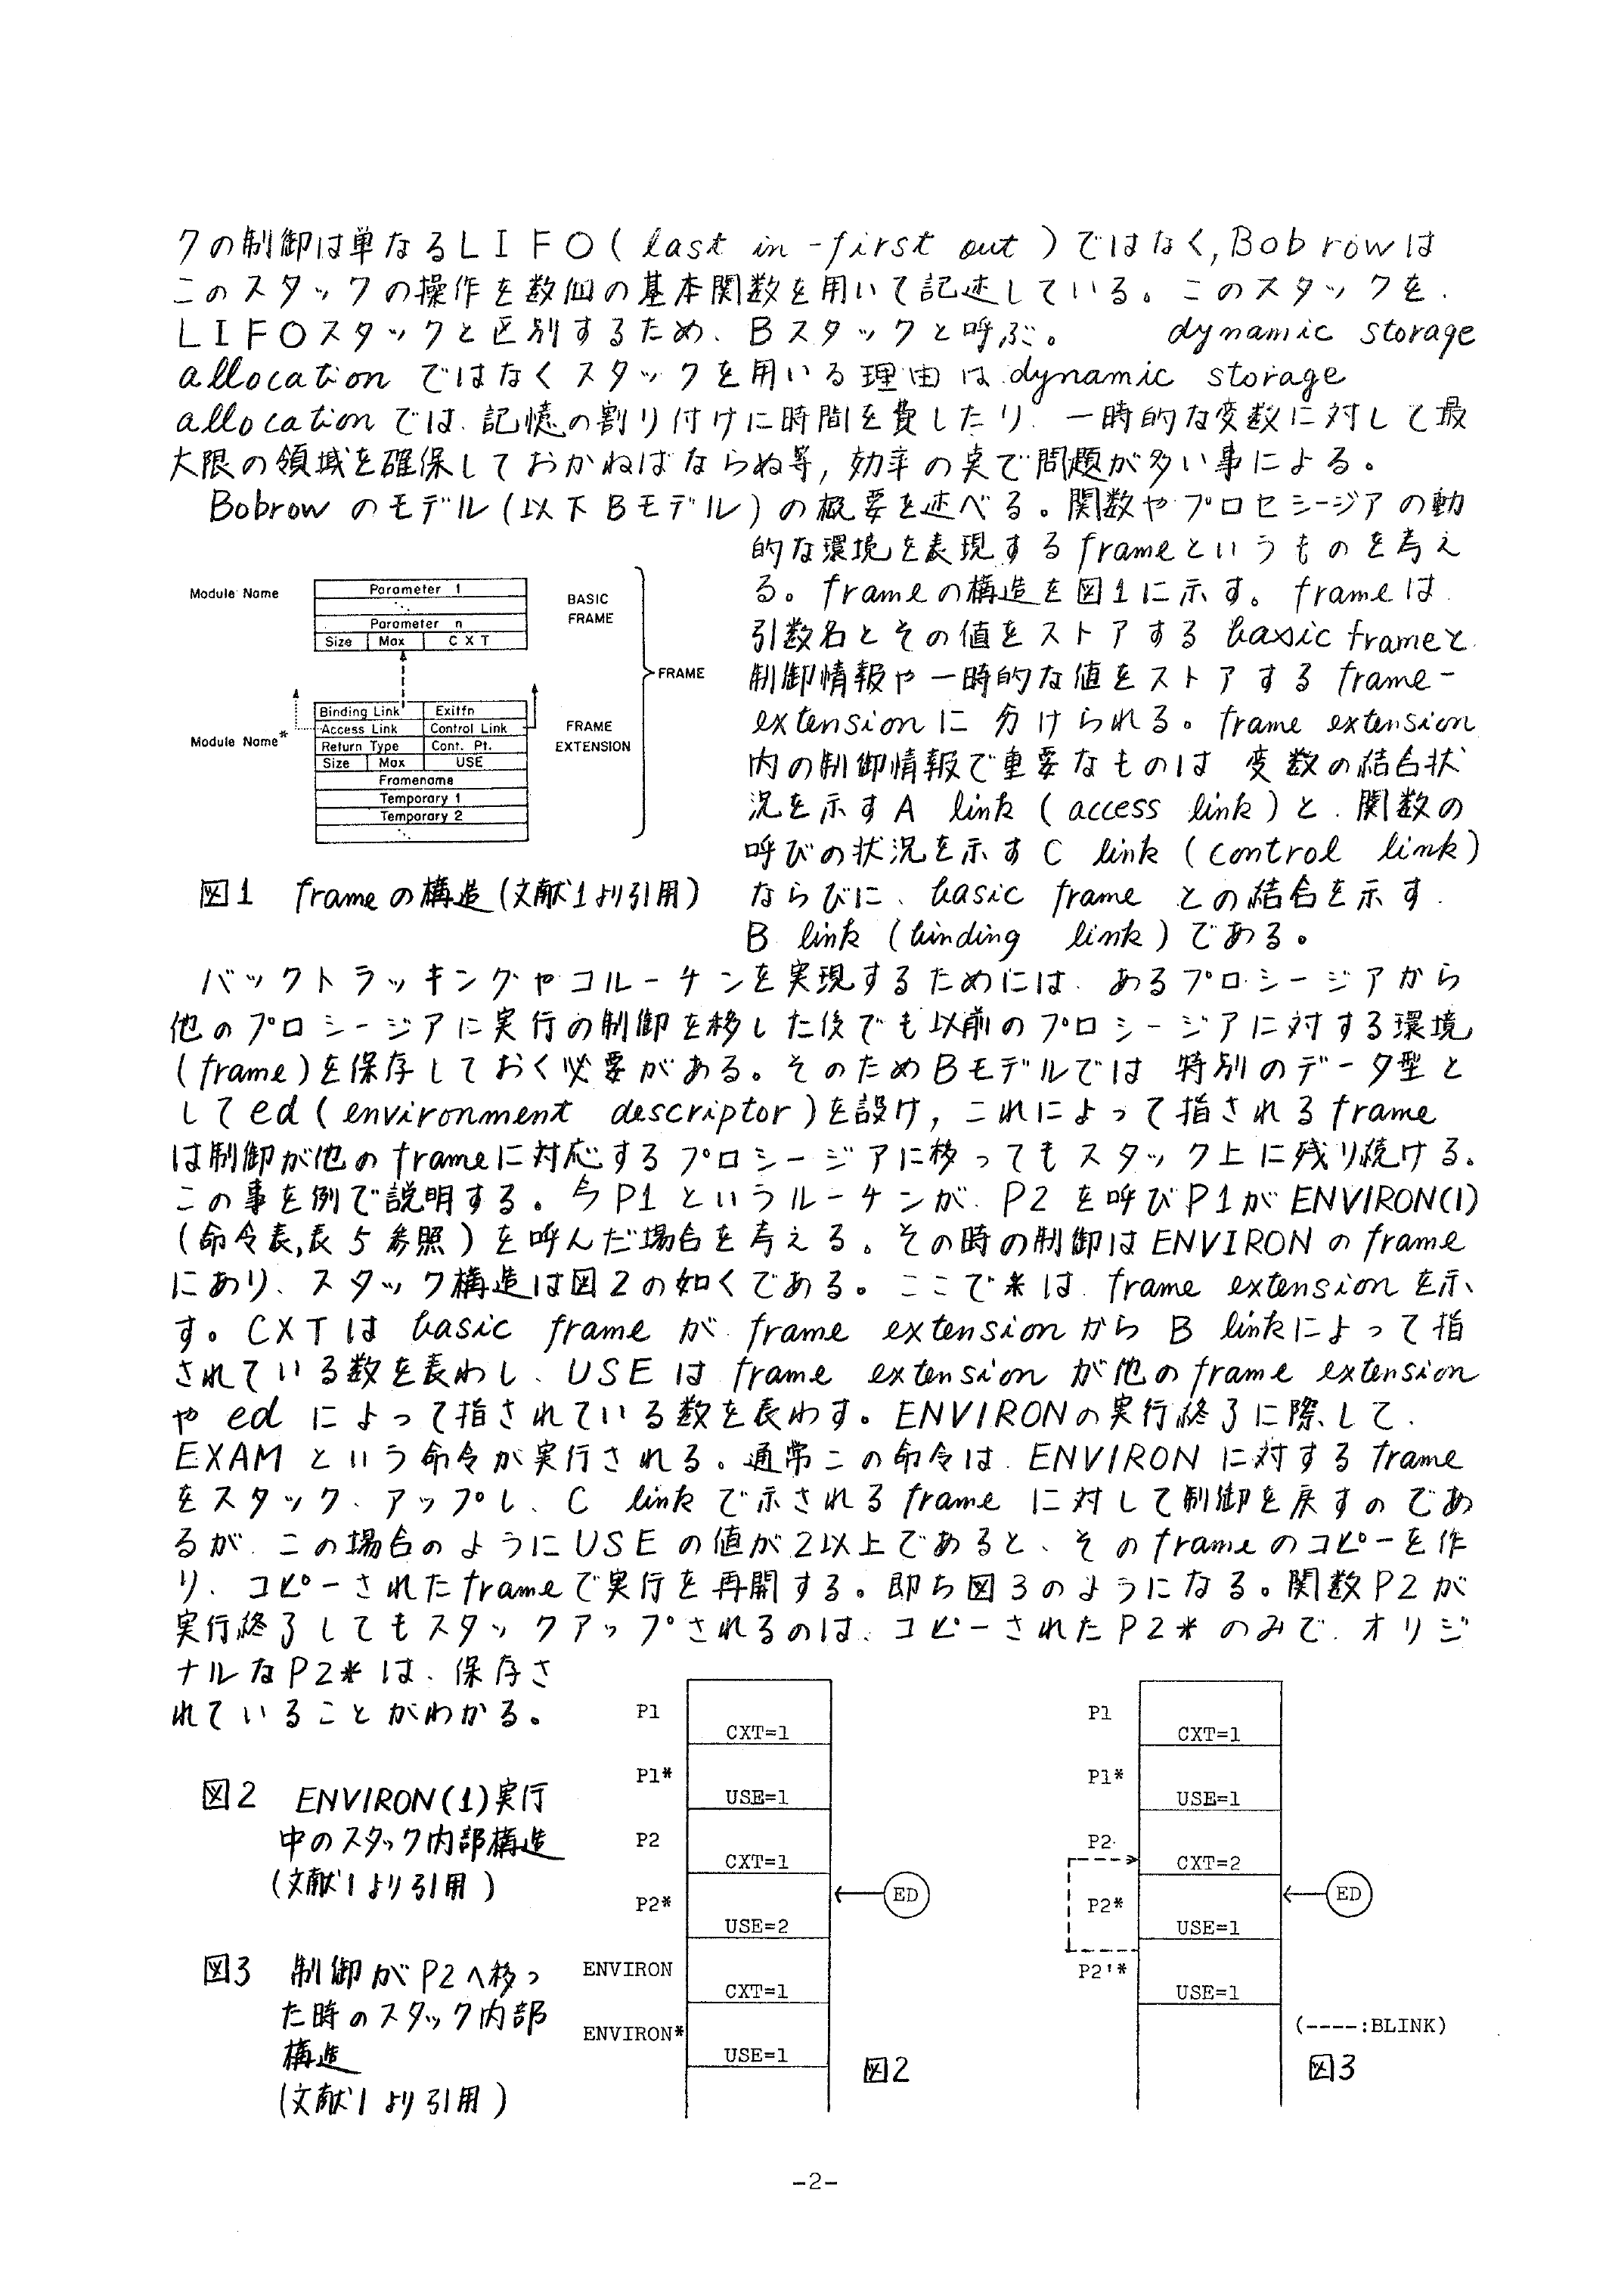 クの制御は単なるLIFO(last in-first out)ではなく,Bobrowは
このスタックの操作を数個の基本関数を用いて記述している。このスタックを、
LIFOスタックと区別するため、Bスタックと呼ぶ。 dynamic storage
allocation ではなくスタックを用いる理由は、dynamic storage
allocationでは、記憶の割り付けに時間を費したり、一時的な変数に対して最
大限の領域を確保しておかねばならぬ等,効率の点で問題が多い事による。
Bobrowのモデル(以下Bモデル)の概要を述べる。関数やプロセシージアの動
的な環境を表現するframeというものを考え
る。frameの構造を図1に示す。frameは、
引数名とその値をストアするbasic frameと、
制御情報や一時的な値をストアするframe-
extensionに分けられる。frame extension
内の制御情報で重要なものは 変数の結合状
況を示すA link (access link)と、関数の
呼びの状況を示すC link (control link)
ならびに、basic frame との結合を示す、
B link (binding link)である。
Module Name
Parameter 1
Parameter n
Size Max CXT
BASIC
FRAME
FRAME
Module Name*
Binding Link Exitfn
Access Link Control Link
Return Type Cont. Pt.
Size Max USE
Framename
Temporary 1
Temporary 2
FRAME
EXTENSION
図1 frameの構造(文献1より引用)
バックトラッキングやコルーチンを実現するためには、あるプロシージアから
他のプロシージアに実行の制御を移した後でも以前のプロシージアに対する環境
(frame)を保存しておく必要がある。そのためBモデルでは 特別のデータ型と
してed(environment descriptor)を設け,これによって指されるframe
は制御が他のframeに対応するプロシージアに移ってもスタック上に残り続ける。
この事を例で説明する。今P1というルーチンが、P2を呼びP1がENVIRON(1)
(命令表,表5参照)を呼んだ場合を考える。その時の制御はENVIRONのframe
にあり、スタック構造は図2の如くである。ここで*は、frame extensionを示
す。CXTはbasic frameが、frame extensionからB linkによって指
されている数を表わし、USEはframe extensionが他のframe extension
やedによって指されている数を表わす。ENVIRONの実行終了に際して、
EXAMという命令が実行される。通常この命令は、ENVIRONに対するframe
をスタック、アップし、C linkで示されるframeに対して制御を戻すのであ
るが、この場合のようにUSEの値が2以上であると、そのframeのコピーを作
り、コピーされたframeで実行を再開する。即ち図3のようになる。関数P2が
実行終了してもスタックアップされるのは、コピーされたP2*のみで、オリジ
ナルなP2*は、保存さ
れていることがわかる。
図2 ENVIRON(1)実行
中のスタック内部構造
(文献1より引用)
図3 制御がP2へ移っ
た時のスタック内部
構造
(文献1より引用)
P1
CXT=1
P1*
USE=1
P2
CXT=1
P2*
USE=2
ED
ENVIRON
CXT=1
ENVIRON*
USE=1
図2
P1
CXT=1
P1*
USE=1
P2
CXT=2
P2*
USE=1
ED
P2'*
USE=1
(----:BLINK)
図3
-2-